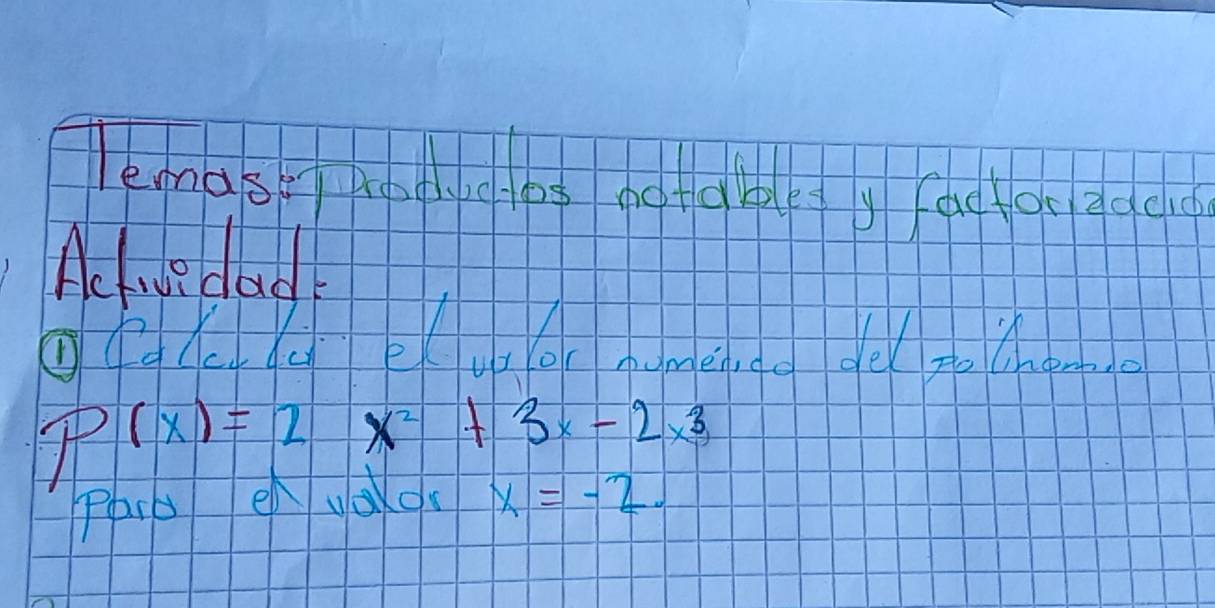 Temas: Productos notables y factorización
Actividad:
① Calcular el valor numérico del polinomio
P(x) = 2 x² + 3x - 2x3
Para el valor x = -2.